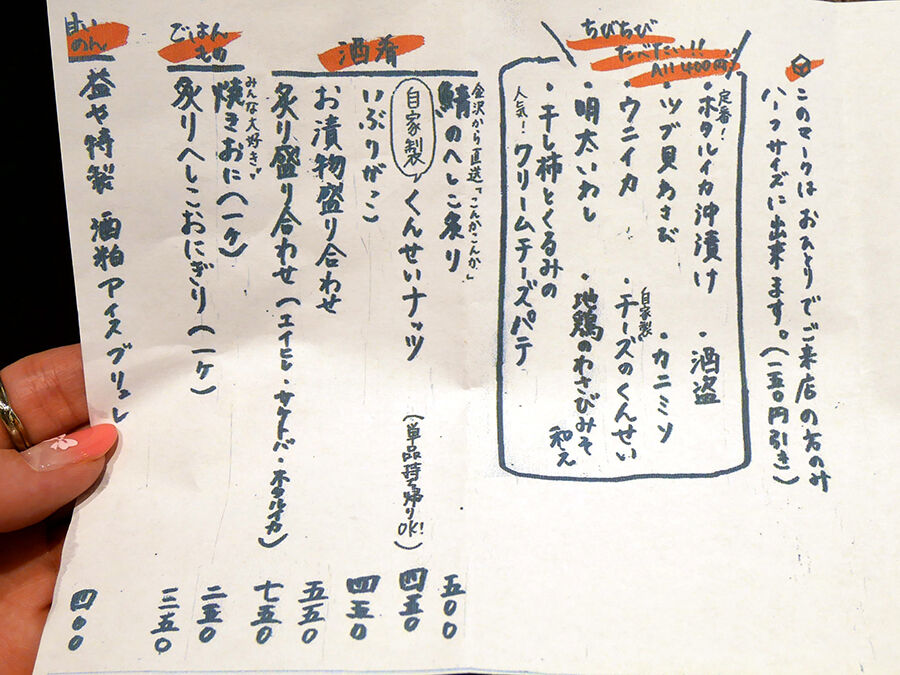 このマークはおひとりでご来店の方のみ
ハーフサイズに出来ます。(一五〇円引き)
ちびちび
たべたい!!
All 400円
定番!
・ホタルイカ沖漬け
・酒盗
・ツブ貝わさび
・カニミソ
・ウニイカ
自家製
・チーズのくんせい
・明太いわし
・地鶏のわさびみそ和え
・干し柿とくるみの
クリームチーズパテ
人気!
酒肴
金沢から直送「こんかこんか」
鯖のへしこ炙り 五〇〇
自家製 くんせいナッツ (単品持ち帰りOK!) 四五〇
いぶりがっこ 四五〇
お漬物盛り合わせ 五五〇
炙り盛り合わせ(エイヒレ・サケトバ・ホタルイカ) 七五〇
ごはんもの
みんな大好き
焼きおに(一ケ) 二五〇
炙りへしこおにぎり(一ケ) 三五〇
益や特製 酒粕アイスブリュレ 四〇〇